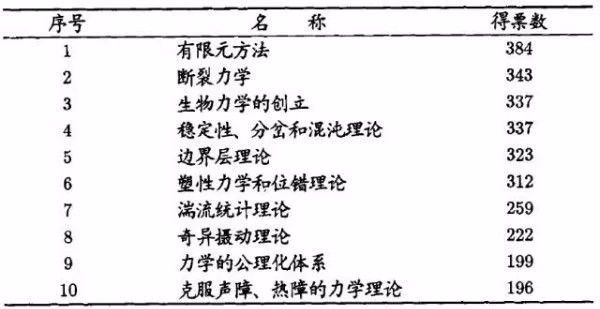 序号 名称 得票数
1 有限元方法 384
2 断裂力学 343
3 生物力学的创立 337
4 稳定性、分岔和混沌理论 337
5 边界层理论 323
6 塑性力学和位错理论 312
7 湍流统计理论 259
8 奇异摄动理论 222
9 力学的公理化体系 199
10 克服声障、热障的力学理论 196